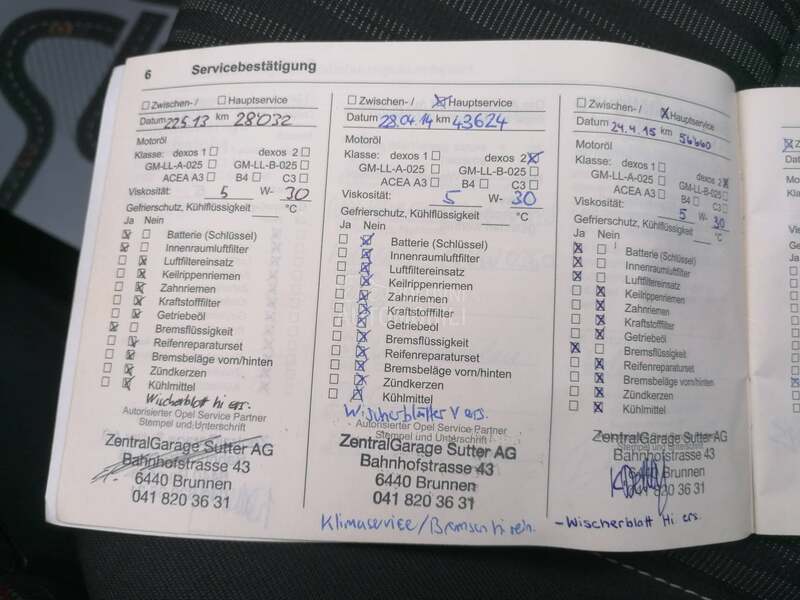 6 Servicebestätigung
☐ Zwischen-/ ☐ Hauptservice
Datum 22.5.13 km 28'032
Motoröl
Klasse: dexos 1 ☐ dexos 2 ☐
GM-LL-A-025 ☐ GM-LL-B-025 ☐
ACEA A3 ☐ B4 ☐ C3 ☐
Viskosität: 5 W- 30
Gefrierschutz, Kühlflüssigkeit °C
Ja Nein
☒ ☐ Batterie (Schlüssel)
☒ ☐ Innenraumluftfilter
☐ ☒ Luftfiltereinsatz
☐ ☒ Keilrippenriemen
☐ ☒ Zahnriemen
☐ ☒ Kraftstofffilter
☐ ☒ Getriebeöl
☒ ☐ Bremsflüssigkeit
☐ ☒ Reifenreparaturset
☐ ☒ Bremsbeläge vorn/hinten
☐ ☒ Zündkerzen
☐ ☒ Kühlmittel
Wischerblatt hi ers.
Autorisierter Opel Service Partner
Stempel und Unterschrift
ZentralGarage Sutter AG
Bahnhofstrasse 43
6440 Brunnen
041 820 36 31
☐ Zwischen-/ ☒ Hauptservice
Datum 28.04.14 km 43624
Motoröl
Klasse: dexos 1 ☐ dexos 2 ☒
GM-LL-A-025 ☐ GM-LL-B-025 ☐
ACEA A3 ☐ B4 ☐ C3 ☐
Viskosität: 5 W- 30
Gefrierschutz, Kühlflüssigkeit °C
Ja Nein
☐ ☒ Batterie (Schlüssel)
☐ ☒ Innenraumluftfilter
☐ ☒ Luftfiltereinsatz
☐ ☒ Keilrippenriemen
☐ ☒ Zahnriemen
☐ ☒ Kraftstofffilter
☐ ☒ Getriebeöl
☐ ☒ Bremsflüssigkeit
☐ ☒ Reifenreparaturset
☐ ☒ Bremsbeläge vorn/hinten
☐ ☒ Zündkerzen
☐ ☒ Kühlmittel
Wischerblätter V ers.
Autorisierter Opel Service Partner
Stempel und Unterschrift
ZentralGarage Sutter AG
Bahnhofstrasse 43
6440 Brunnen
041 820 36 31
Klimaservice/Bremsen hi rein.
☐ Zwischen-/ ☒ Hauptservice
Datum 24.4.15 km 56660
Motoröl
Klasse: dexos 1 ☐ dexos 2 ☒
GM-LL-A-025 ☐ GM-LL-B-025 ☐
ACEA A3 ☐ B4 ☐ C3 ☐
Viskosität: 5 W- 30
Gefrierschutz, Kühlflüssigkeit °C
Ja Nein
☒ ☐ Batterie (Schlüssel)
☒ ☐ Innenraumluftfilter
☒ ☐ Luftfiltereinsatz
☐ ☒ Keilrippenriemen
☐ ☒ Zahnriemen
☐ ☒ Kraftstofffilter
☐ ☒ Getriebeöl
☒ ☐ Bremsflüssigkeit
☐ ☒ Reifenreparaturset
☐ ☒ Bremsbeläge vorn/hinten
☐ ☒ Zündkerzen
☐ ☒ Kühlmittel
ZentralGarage Sutter AG
Stempel und
Bahnhofstrasse 43
6440 Brunnen
041 820 36 31
- Wischerblatt Hi ers.